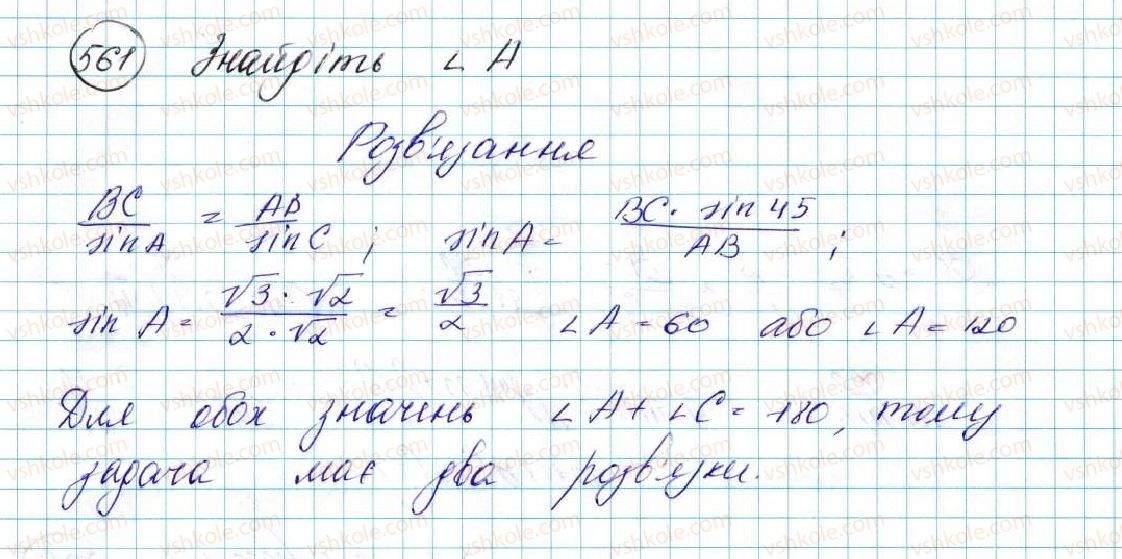 561 Знайдіть ∠ A
Розв'язання
BC/sin A = AB/sin C ; sin A = BC · sin 45/AB ;
sin A = √3 · √2/2 · √2 = √3/2 ∠A = 60 або ∠A = 120
Для обох значень ∠A + ∠C = 180, тому
задача має два розв'язки.